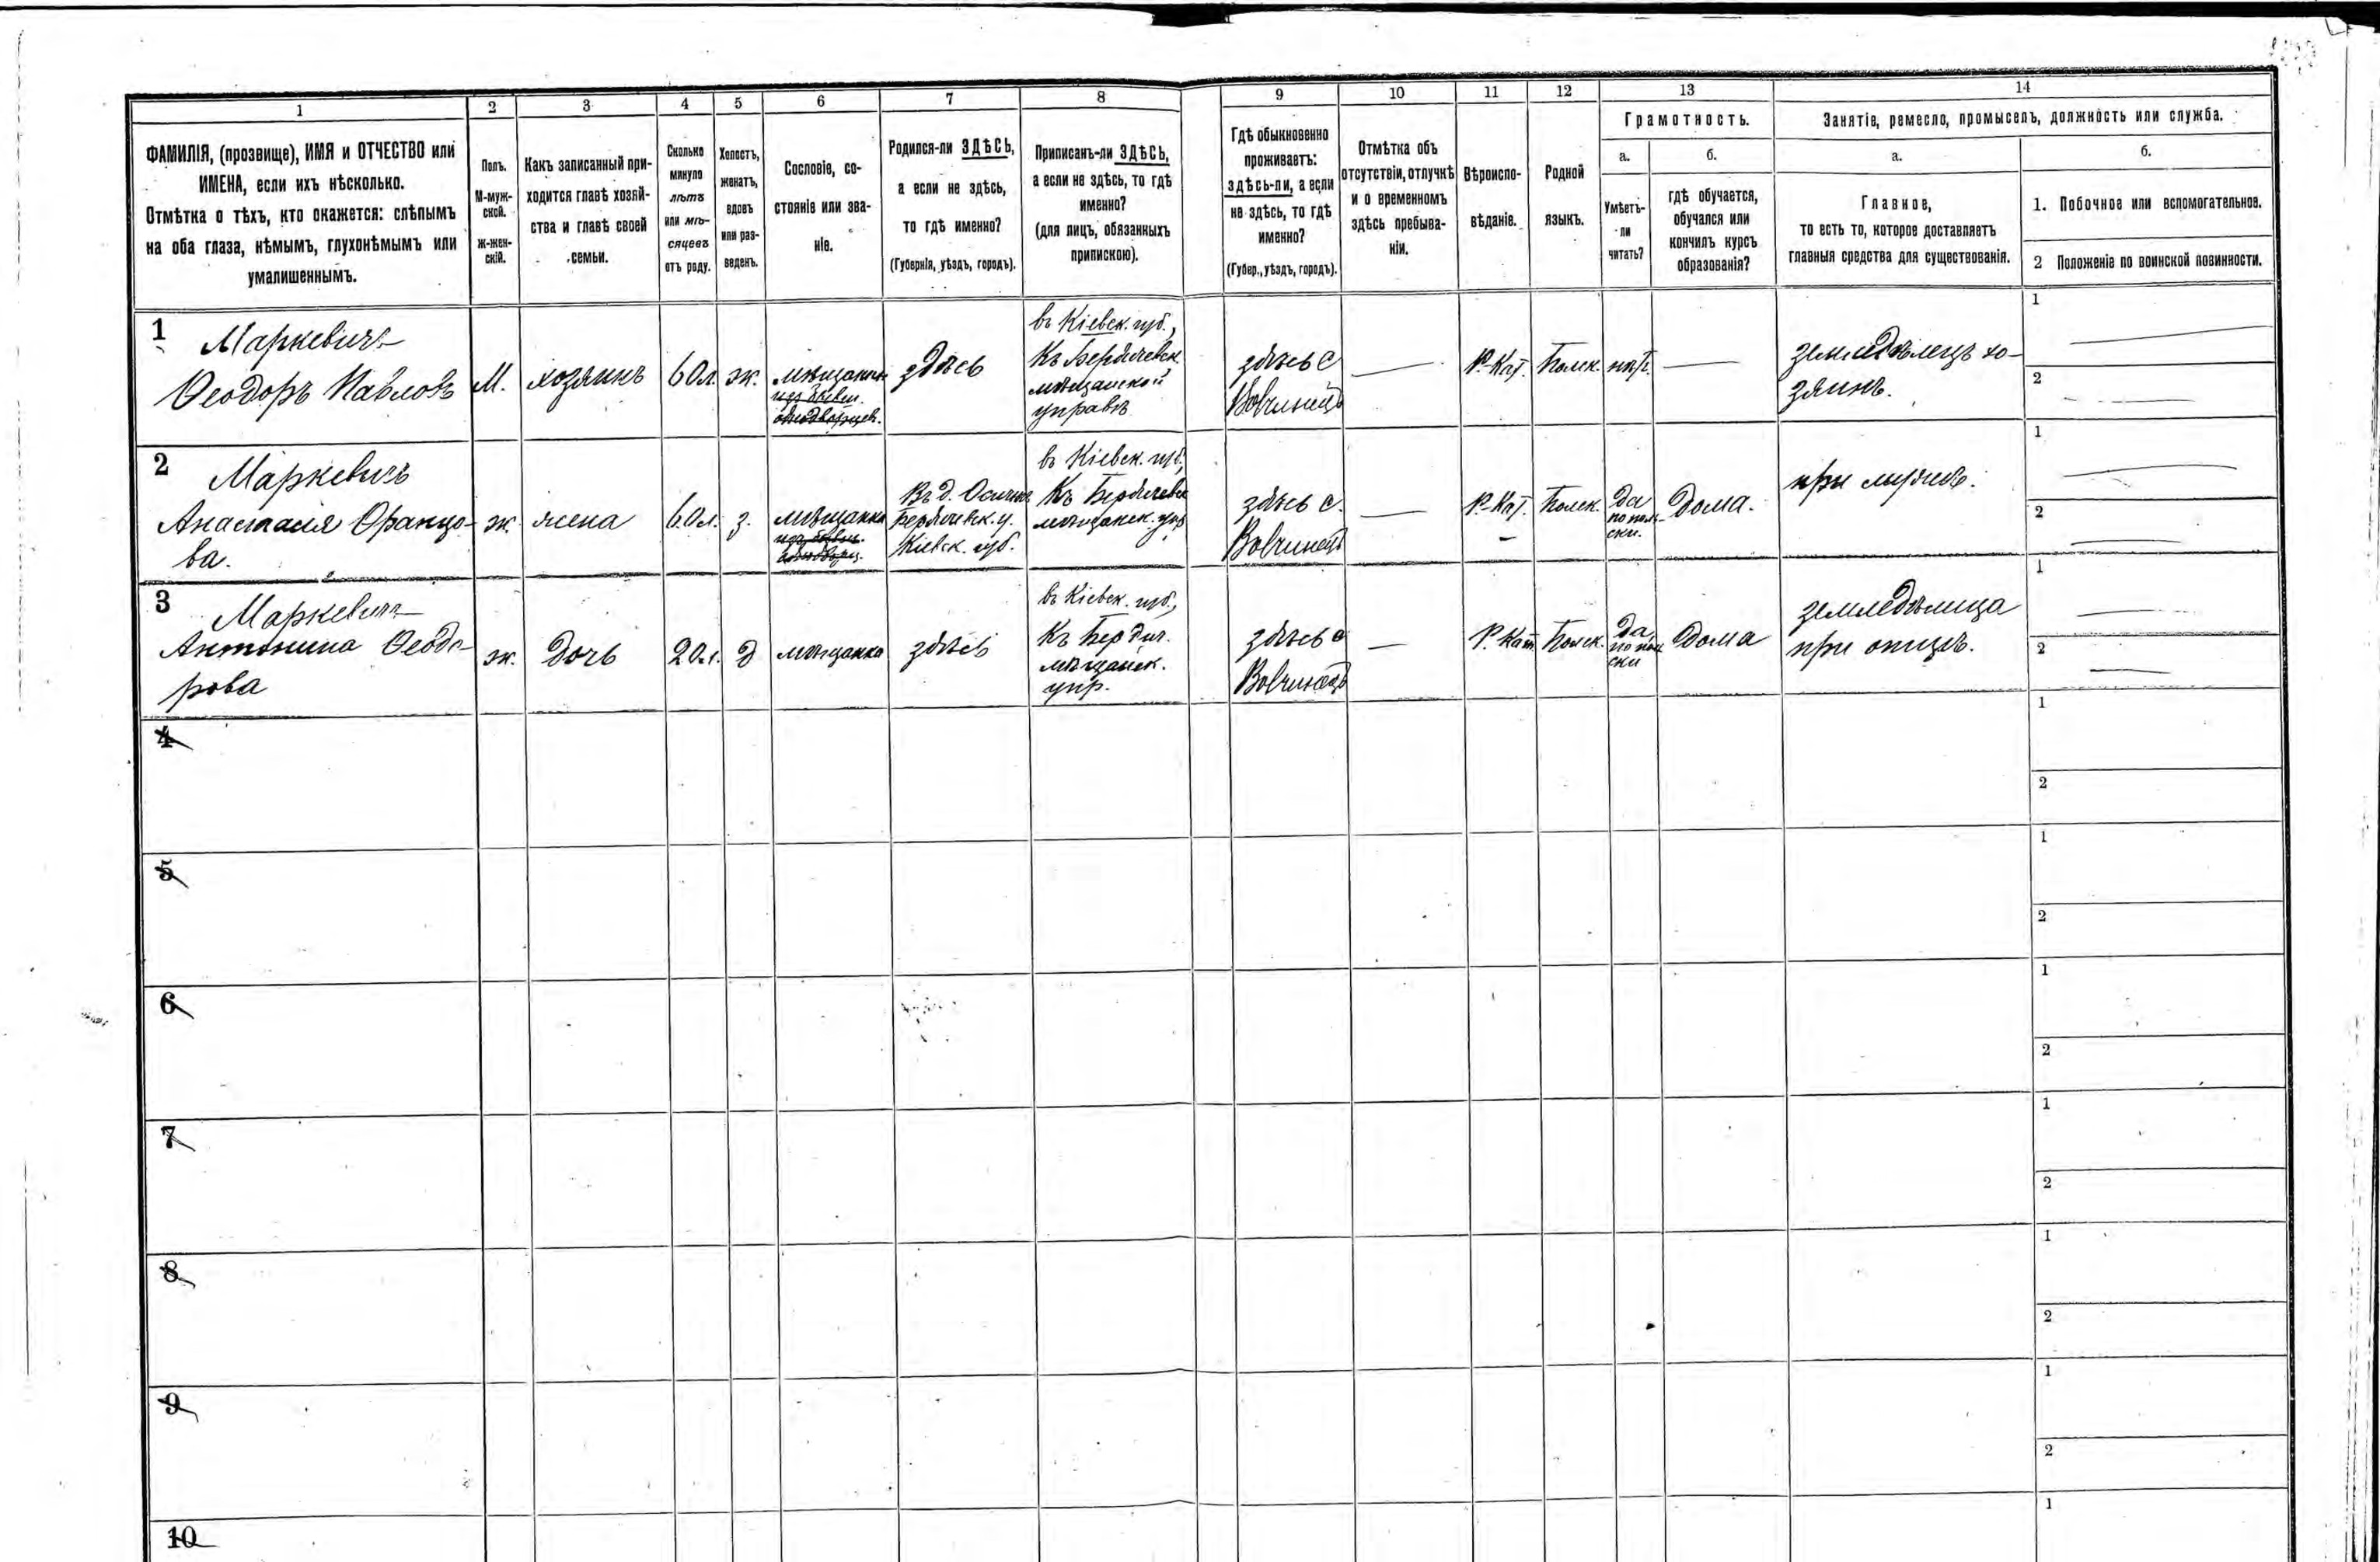 1
2
3
4
5
6
7
8
9
10
11
12
13
14
ФАМИЛІЯ, (прозвище), ИМЯ и ОТЧЕСТВО или
ИМЕНА, если ихъ нѣсколько.
Отмѣтка о тѣхъ, кто окажется: слѣпымъ
на оба глаза, нѣмымъ, глухонѣмымъ или
умалишеннымъ.
Полъ.
М-муж-
ской.
ж-жен-
скій.
Какъ записанный при-
ходится главѣ хозяй-
ства и главѣ своей
семьи.
Сколько
минуло
лѣтъ
или мѣ-
сяцевъ
отъ роду.
Холостъ,
женатъ,
вдовъ
или раз-
веденъ.
Сословіе, со-
стояніе или зва-
ніе.
Родился-ли ЗДѢСЬ,
а если не здѣсь,
то гдѣ именно?
(Губернія, уѣздъ, городъ).
Приписанъ-ли ЗДѢСЬ,
а если не здѣсь, то гдѣ
именно?
(для лицъ, обязанныхъ
припискою).
Гдѣ обыкновенно
проживаетъ:
здѣсь-ли, а если
не здѣсь, то гдѣ
именно?
(Губер., уѣздъ, городъ).
Отмѣтка объ
отсутствіи, отлучкѣ
и о временномъ
здѣсь пребыва-
ніи.
Вѣроиспо-
вѣданіе.
Родной
языкъ.
Грамотность.
а.
Умѣетъ-
ли
читать?
б.
гдѣ обучается,
обучался или
кончилъ курсъ
образованія?
Занятіе, ремесло, промыселъ, должность или служба.
а.
Главное,
то есть то, которое доставляетъ
главныя средства для существованія.
б.
1. Побочное или вспомогательное.
2 Положеніе по воинской повинности.
1
Маркевичъ
Ѳеодоръ Павловъ
М.
хозяинъ
60 л.
ж.
мѣщанинъ
из бывш.
однодворцев.
здѣсь
въ Кіевск. губ.,
Къ Бердичевск.
мѣщанской
управѣ
здѣсь с
Вовчинецъ
Р.-Кат.
Польск.
нѣт.
земледѣлецъ хо-
зяинъ.
1
2
2
Маркевичъ
Анастасія Францо-
ва.
ж.
жена
60 л.
з.
мѣщанка
Бердичевск. у.
Кіевск. губ.
въ Кіевск. губ.,
Къ Бердичевск
мѣщанск. упр
здѣсь с.
Вовчинецъ
Р.-Кат.
Польск.
Да
по поль-
ски.
Дома.
при мужѣ.
1
2
3
Маркевичъ
Антонина Ѳеодо-
рова
ж.
Дочь
20 л.
д
мѣщанка
здѣсь
въ Кіевск. губ.,
Къ Бердич.
мѣщанск.
упр.
здѣсь с
Вовчинецъ
Р. Кат.
Польск.
Да,
по поль
ски
Дома
земледѣлица
при отцѣ.
1
2
4
1
2
5
1
2
6
1
2
7
1
2
8
1
2
9
1
2
10
1